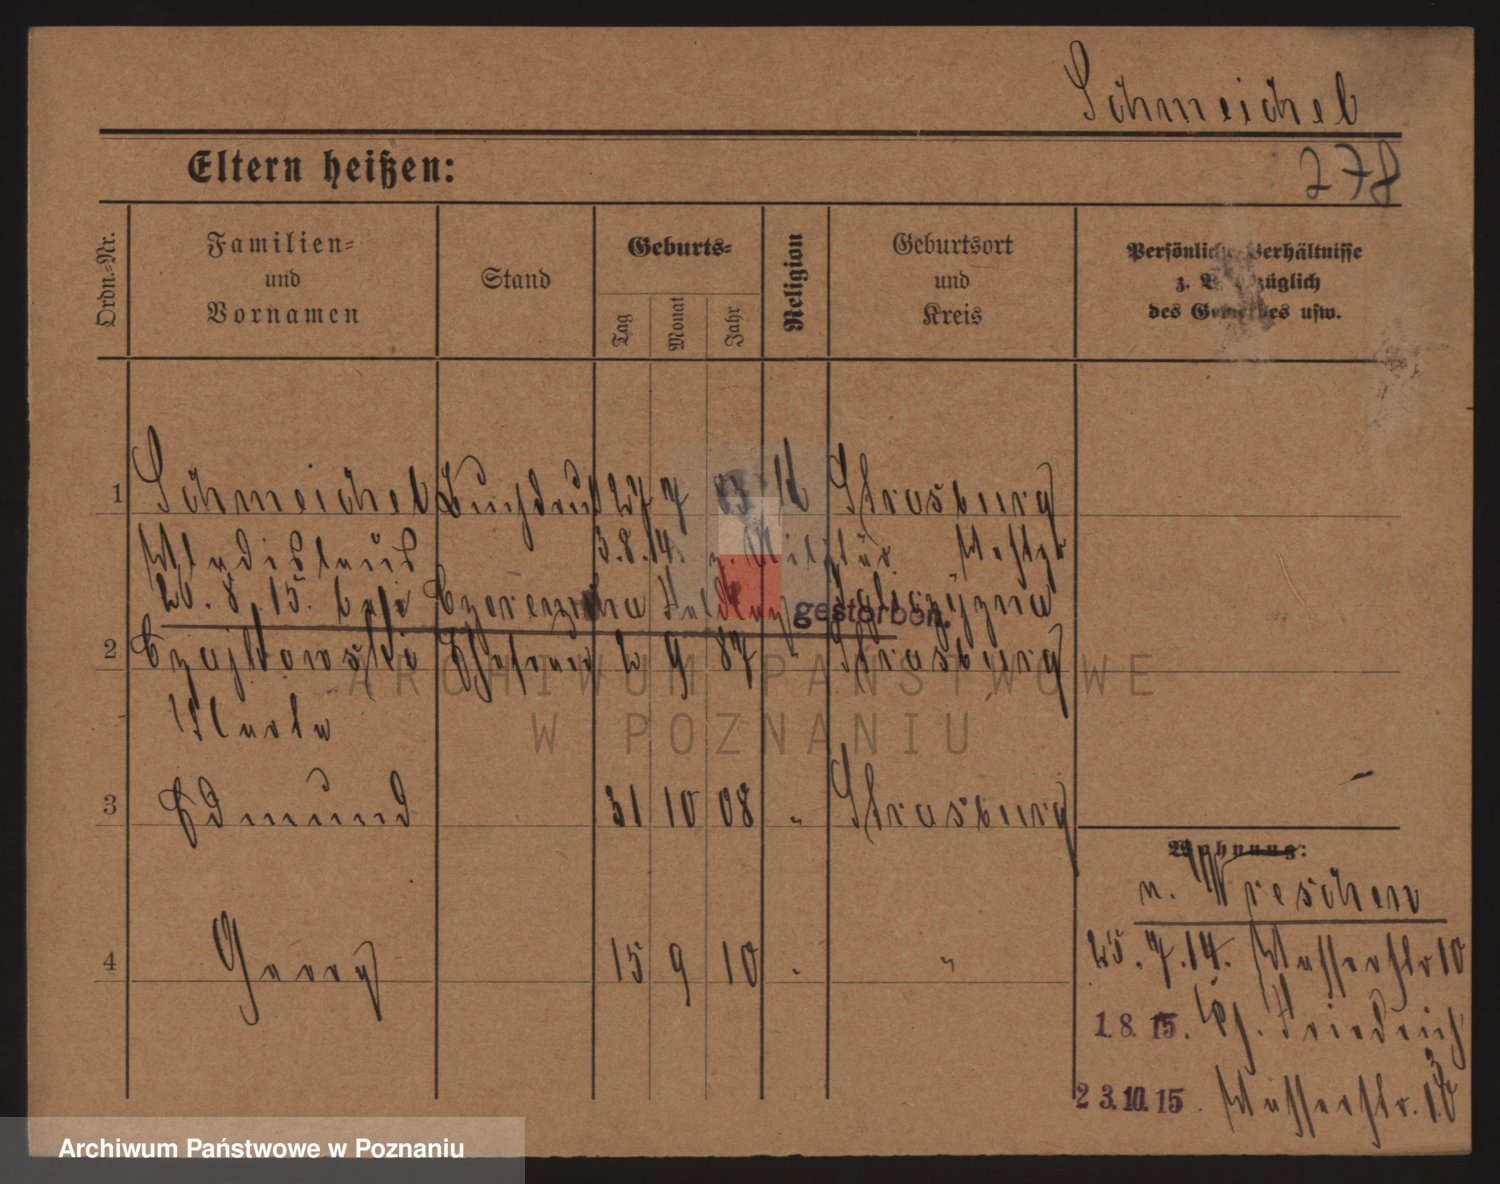 Schmeichel
Eltern heißen:
278
Ordn.=Nr.
Familien=
und
Vornamen
Stand
Geburts=
Tag
Monat
Jahr
Religion
Geburtsort
und
Kreis
Persönliche Verhältnisse
z. B. bezüglich
des Gewerbes usw.
1 Schmeichel Buchdruck 27 7 83 k Strasburg
Wladislaus 3.8.14. z. Militär. Westpr
26.8.15. bei gestorben.
2 Czajkowski Ehefrau 2 9 87 " Strasburg
ARCHIWUM PAŃSTWOWE
W POZNANIU
3 Edmund 31 10 08 " Strasburg
Wohnung:
n. Wreschen
4 Georg 15 9 10 " "
25.7.14. Wasserstr 10
1.8.15. Friedrich
23.10.15 Wasserstr.
Archiwum Państwowe w Poznaniu